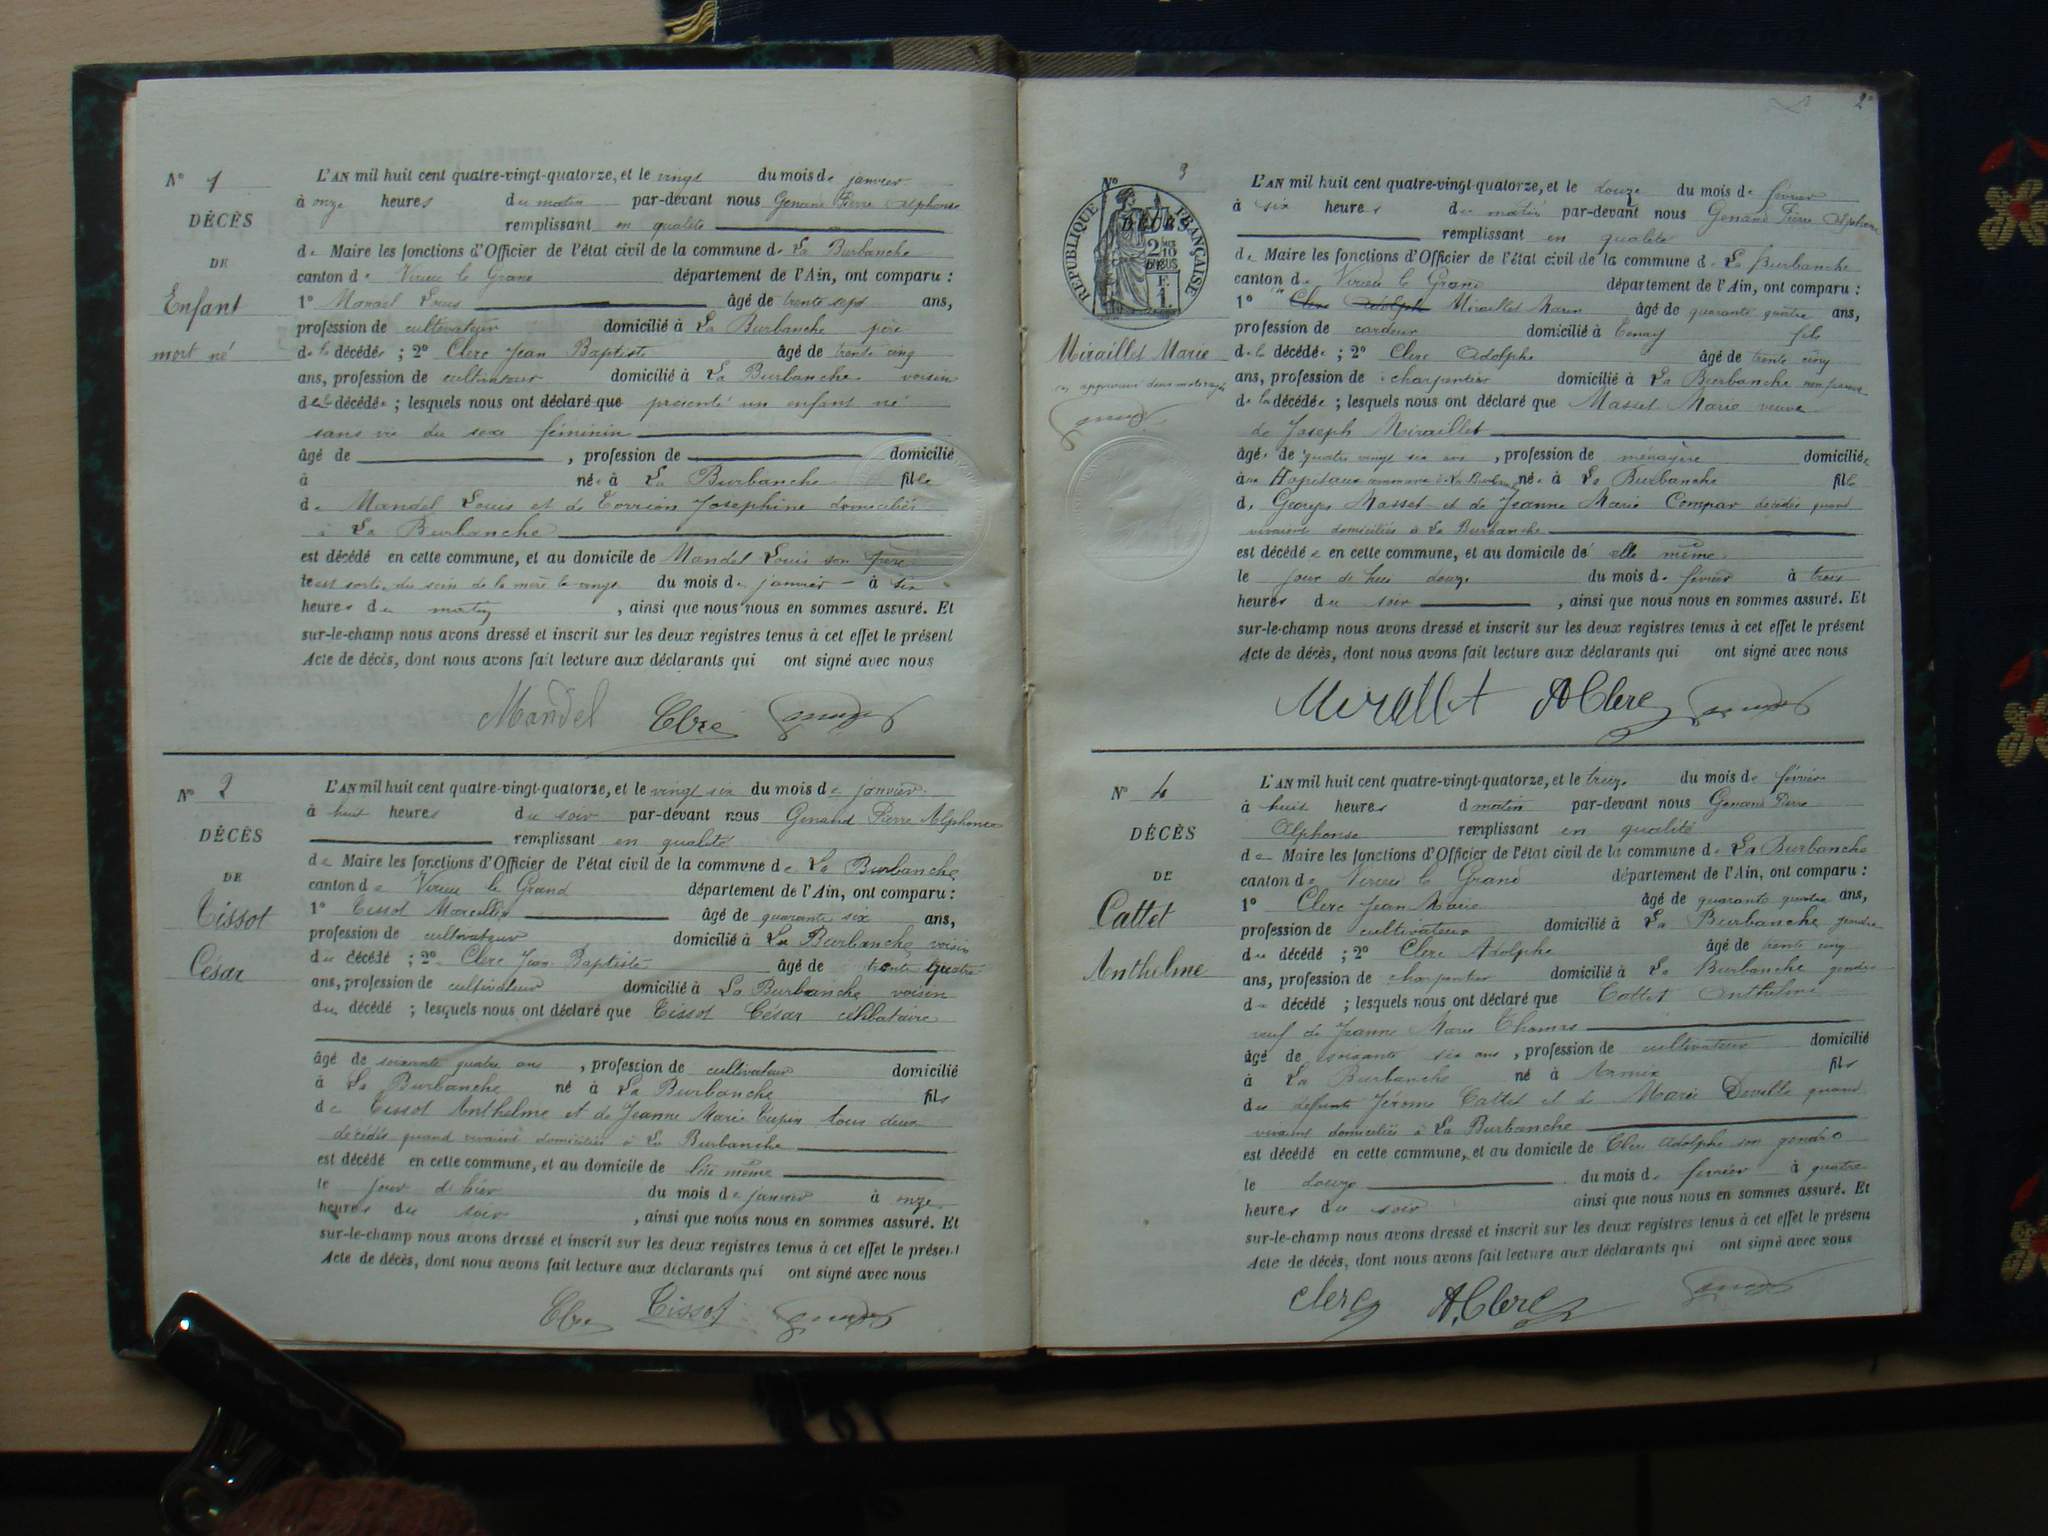 N° 1
DÉCÈS
DE
Enfant
mort né
L'AN mil huit cent quatre-vingt-quatorze, et le vingt du mois de janvier
à onze heures du matin par-devant nous Genand Pierre Alphonse
remplissant en qualité
de Maire les fonctions d'Officier de l'état civil de la commune de La Burbanche
canton de Virieu le Grand département de l'Ain, ont comparu :
1° Mandel Louis âgé de trente sept ans,
profession de cultivateur domicilié à La Burbanche père
de la décédée ; 2° Clerc Jean Baptiste âgé de trente cinq
ans, profession de cultivateur domicilié à La Burbanche voisin
de la décédée ; lesquels nous ont déclaré que presenté un enfant né
sans vie du sexe féminin
âgé de , profession de domicilié
à née à La Burbanche fille
de Mandel Louis et de Josephine domiciliés
à La Burbanche
est décédé en cette commune, et au domicile de Mandel Louis son père
est sortie du sein de la mère le vingt du mois de janvier à six
heures du matin , ainsi que nous nous en sommes assuré. Et
sur-le-champ nous avons dressé et inscrit sur les deux registres tenus à cet effet le présent
Acte de décès, dont nous avons fait lecture aux déclarants qui ont signé avec nous
Mandel Clerc
N° 2
DÉCÈS
DE
Tissot
César
L'AN mil huit cent quatre-vingt-quatorze, et le vingt six du mois de janvier
à huit heures du soir par-devant nous Genand Pierre Alphonse
remplissant en qualité
de Maire les fonctions d'Officier de l'état civil de la commune de La Burbanche
canton de Virieu le Grand département de l'Ain, ont comparu :
1° Tissot Marcellin âgé de quarante six ans,
profession de cultivateur domicilié à La Burbanche voisin
du décédé ; 2° Clerc Jean Baptiste âgé de trente quatre
ans, profession de cultivateur domicilié à La Burbanche voisin
du décédé ; lesquels nous ont déclaré que Tissot César célibataire
âgé de soixante quatre ans , profession de cultivateur domicilié
à La Burbanche né à La Burbanche fils
de Tissot Anthelme et de Jeanne Marie tous deux
décédés quand vivaient domiciliés à La Burbanche
est décédé en cette commune, et au domicile de lui même
le jour d'hier du mois de janvier à onze
heures du soir , ainsi que nous nous en sommes assuré. Et
sur-le-champ nous avons dressé et inscrit sur les deux registres tenus à cet effet le présent
Acte de décès, dont nous avons fait lecture aux déclarants qui ont signé avec nous
Clerc Tissot
2
N° 3
RÉPUBLIQUE FRANÇAISE
DÉCÈS
DE
Miraillet Marie
L'AN mil huit cent quatre-vingt-quatorze, et le douze du mois de février
à six heures du matin par-devant nous Genand Pierre Alphonse
remplissant en qualité
de Maire les fonctions d'Officier de l'état civil de la commune de La Burbanche
canton de Virieu le Grand département de l'Ain, ont comparu :
1° Clerc Adolphe Miraillet Marin âgé de quarante quatre ans,
profession de cardeur domicilié à Tenay fils
de la décédée ; 2° Clerc Adolphe âgé de trente cinq
ans, profession de charpentier domicilié à La Burbanche non parent
de la décédée ; lesquels nous ont déclaré que Masset Marie veuve
de Joseph Miraillet
âgée de quatre vingt six ans , profession de ménagère domiciliée
née à La Burbanche fille
de Georges Masset et de Jeanne Marie décédés quand
vivaient domiciliés à La Burbanche
est décédée en cette commune, et au domicile de elle même
le jour de hier douze du mois de février à trois
heures du soir , ainsi que nous nous en sommes assuré. Et
sur-le-champ nous avons dressé et inscrit sur les deux registres tenus à cet effet le présent
Acte de décès, dont nous avons fait lecture aux déclarants qui ont signé avec nous
Mirallet A Clerc
N° 4
DÉCÈS
DE
Cattet
Anthelme
L'AN mil huit cent quatre-vingt-quatorze, et le treize du mois de février
à huit heures d matin par-devant nous Genand Pierre
Alphonse remplissant en qualité
de Maire les fonctions d'Officier de l'état civil de la commune de La Burbanche
canton de Virieu le Grand département de l'Ain, ont comparu :
1° Clerc Jean Marie âgé de quarante quatre ans,
profession de cultivateur domicilié à La Burbanche gendre
du décédé ; 2° Clerc Adolphe âgé de trente cinq
ans, profession de charpentier domicilié à La Burbanche gendre
du décédé ; lesquels nous ont déclaré que Cattet Anthelme
veuf de Jeanne Marie
âgé de soixante six ans , profession de cultivateur domicilié
à La Burbanche né à Armix fils
de defunts Jérome Cattet et de Marie quand
vivaient domiciliés à La Burbanche
est décédé en cette commune, et au domicile de Clerc Adolphe son gendre
le douze du mois de fevrier à quatre
heures du soir ainsi que nous nous en sommes assuré. Et
sur-le-champ nous avons dressé et inscrit sur les deux registres tenus à cet effet le présent
Acte de décès, dont nous avons fait lecture aux déclarants qui ont signé avec nous
Clerc A. Clerc